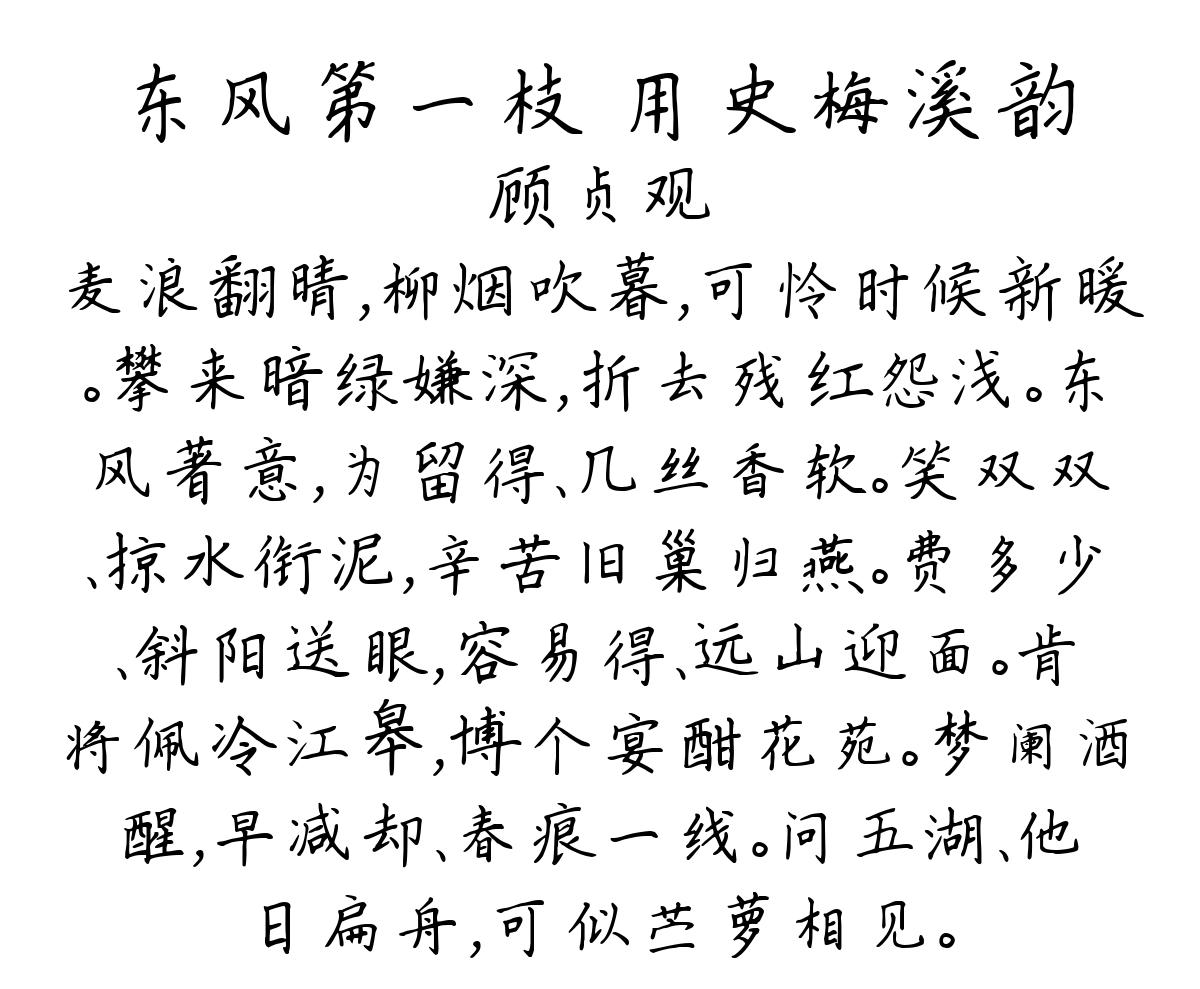 东风第一枝 用史梅溪韵
顾贞观
麦浪翻晴,柳烟吹暮,可怜时候新暖
。攀来暗绿嫌深,折去残红怨浅。东
风著意,为留得、几丝香软。笑双双
、掠水衔泥,辛苦旧巢归燕。费多少
、斜阳送眼,容易得、远山迎面。肯
将佩冷江皋,博个宴酣花苑。梦阑酒
醒,早减却、春痕一线。问五湖、他
日扁舟,可似苎萝相见。